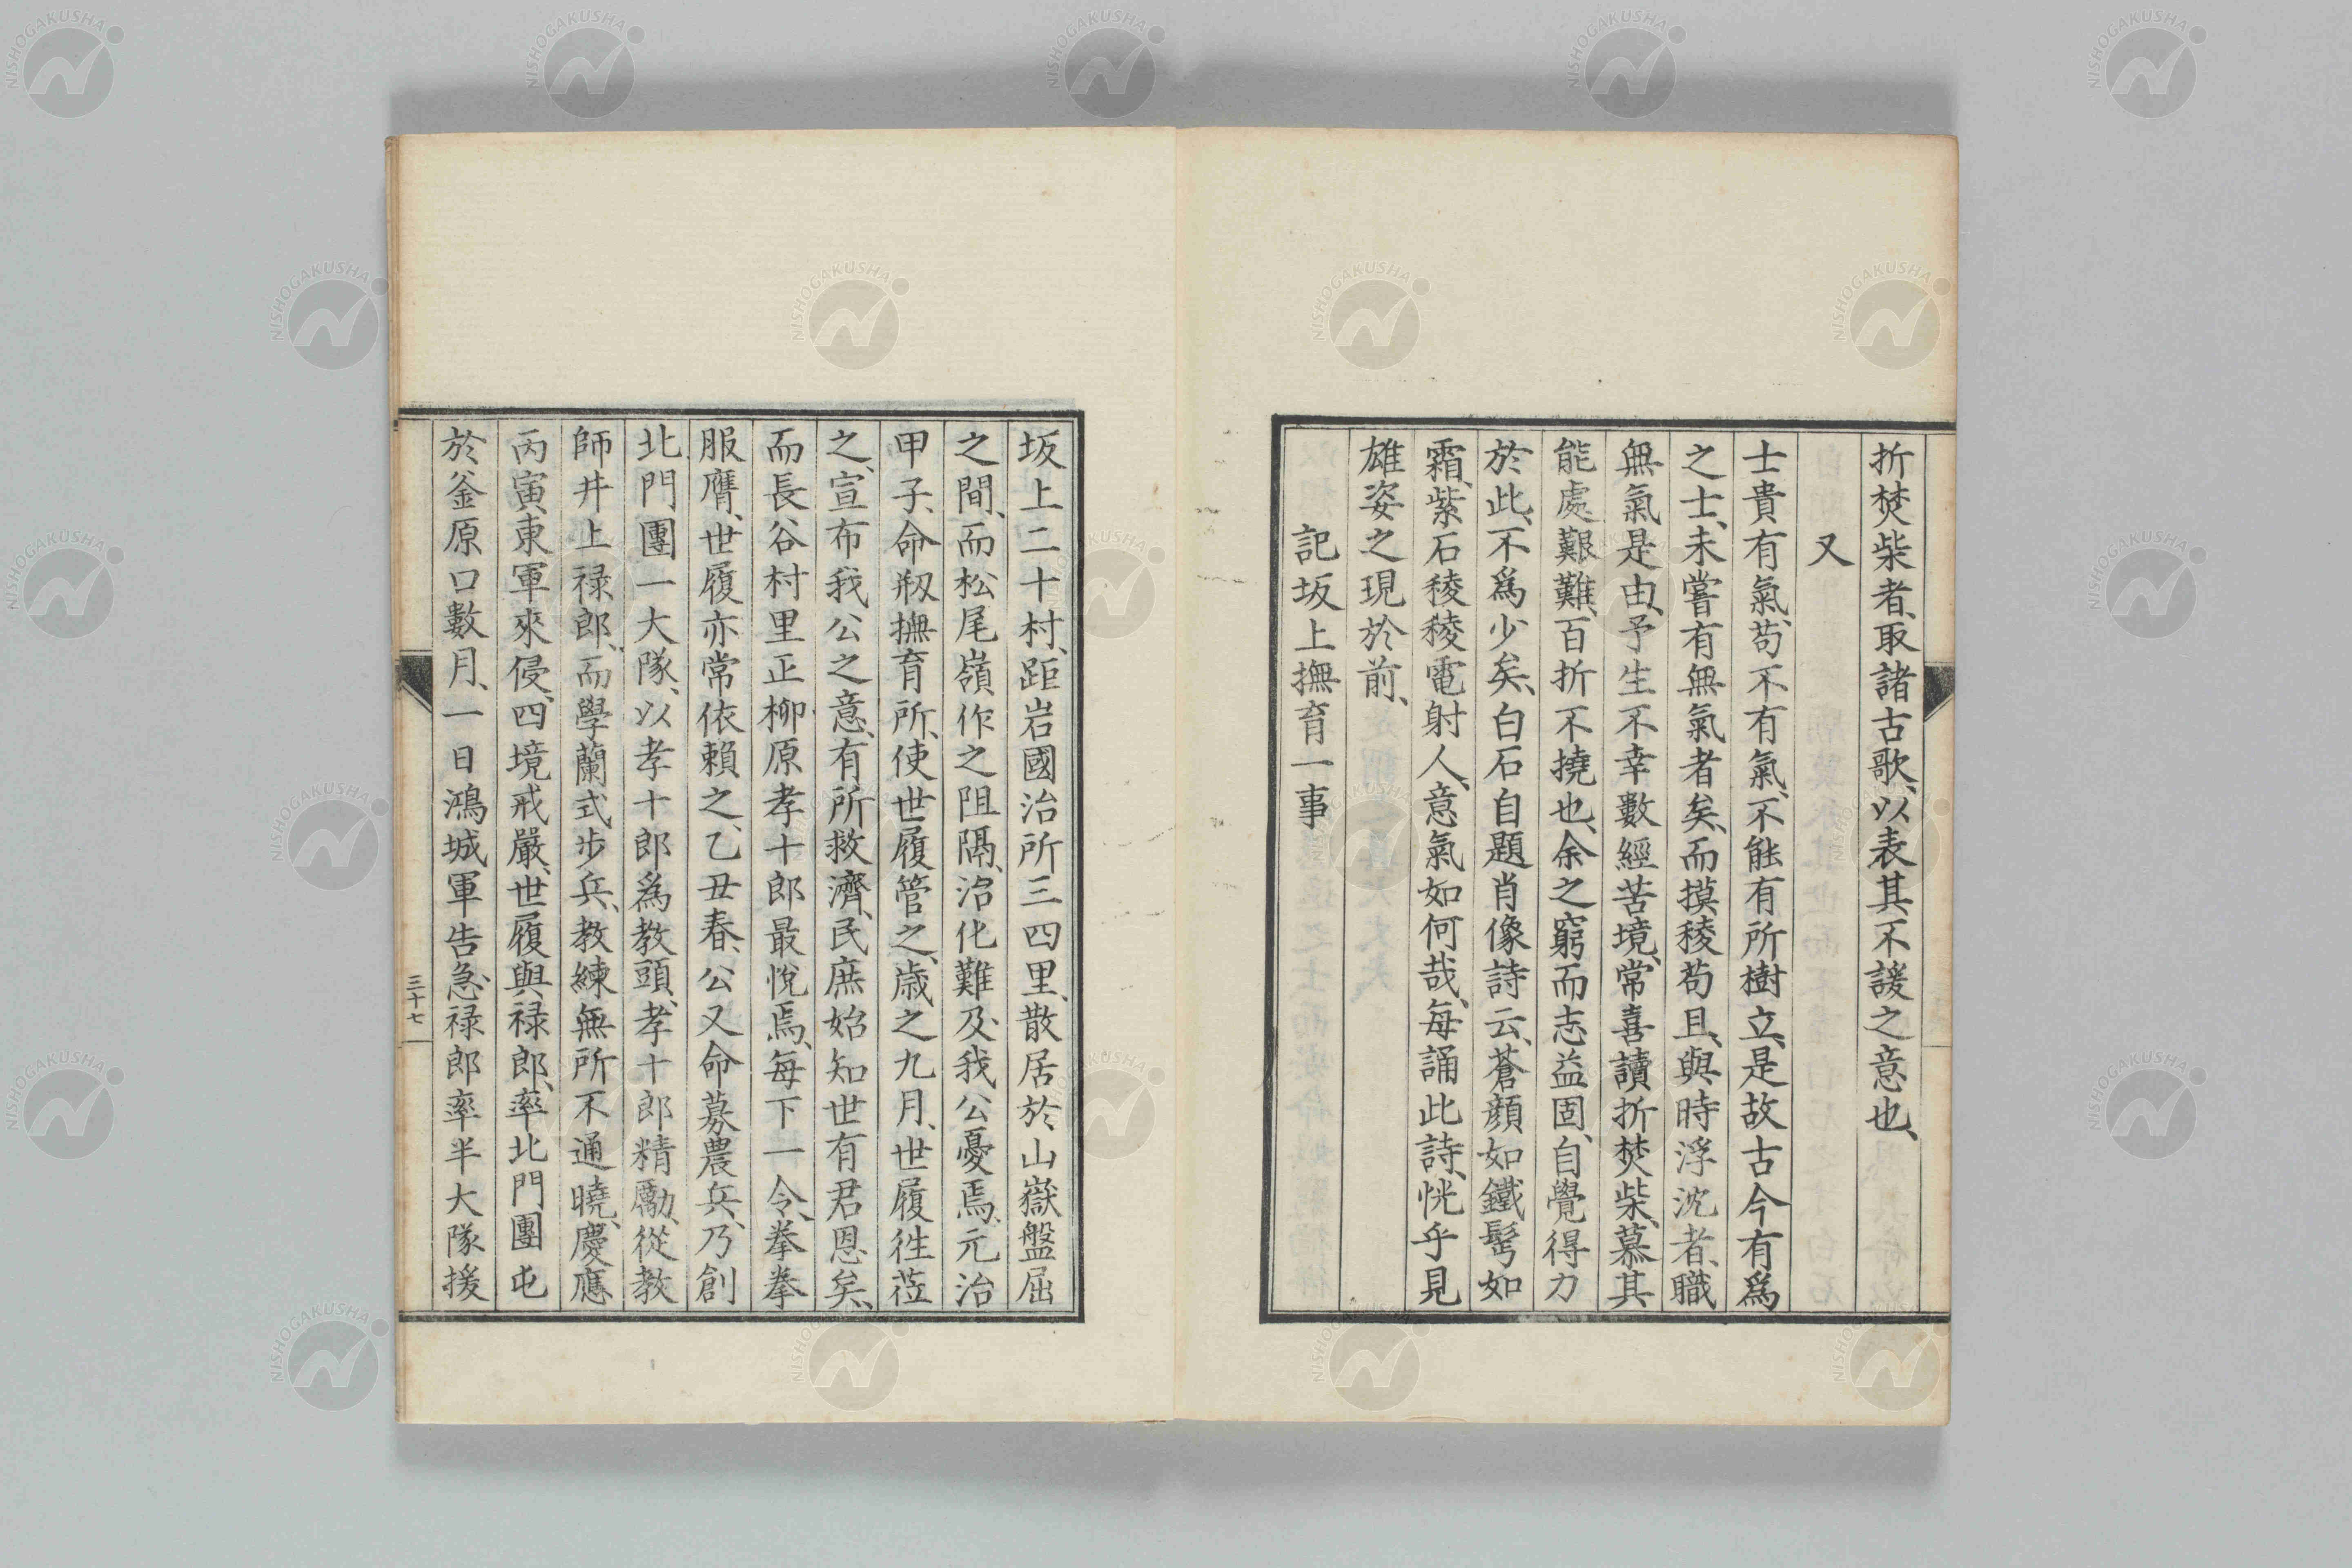 折焚柴者、取諸古歌、以表其不諼之意也、
又
士貴有氣、苟不有氣、不能有所樹立、是故古今有爲
之士、未嘗有無氣者矣、而摸稜苟且、與時浮沈者、職
無氣是由、予生不幸數經苦境、常喜讀折焚柴、慕其
能處艱難、百折不撓也、余之窮而志益固、自覺得力
於此、不爲少矣、白石自題肖像詩云、蒼顏如鐵髩如
霜、紫石稜稜電射人、意氣如何哉、每誦此詩、恍乎見
雄姿之現於前、
記坂上撫育一事
坂上二十村、距岩國治所三四里、散居於山嶽盤屈
之間、而松尾嶺作之阻隔、治化難及、我公憂焉、元治
甲子、命剏撫育所、使世履管之、歳之九月、世履徃莅
之、宣布我公之意、有所救濟、民庶始知世有君恩矣、
而長谷村里正柳原孝十郎最悅焉、每下一令、拳拳
服膺、世履亦常依賴之、乙丑春、公又命募農兵、乃創
北門團一大隊、以孝十郎爲教頭、孝十郎精勵、從教
師井上禄郎、而學蘭式步兵、教練無所不通曉、慶應
丙寅、東軍來侵、四境戒嚴、世履與禄郎、率北門團屯
於釜原口數月、一日鴻城軍告急、禄郎率半大隊援
三十七
NISHOGAKUSHA